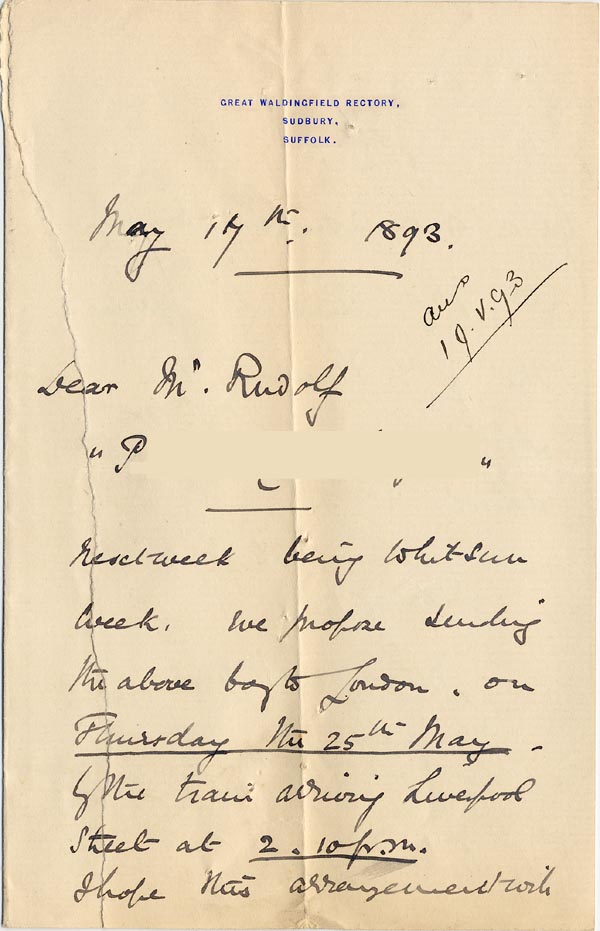 GREAT WALDINGFIELD RECTORY,
SUDBURY,
SUFFOLK.
May 17th. 1893.
ans
19.V.93
Dear Mr. Rudolf
"P "
Next week being Whitsun
Week. We propose sending
the above boy to London, on
Thursday the 25th May.
by the train arriving Liverpool
Street at 2.10 p.m.
I hope this arrangement will